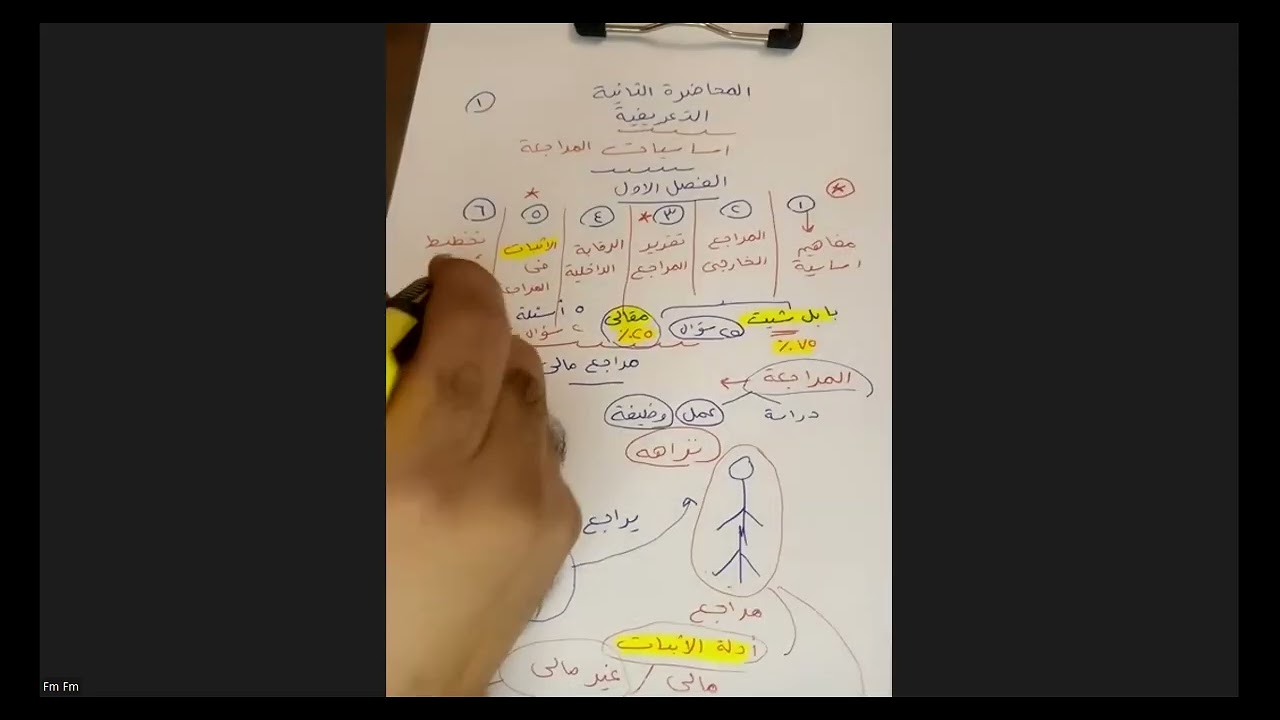 المحاضرة الثانية
١
التعريفية
اساسيات المراجعة
الفصل الاول
١ ٢ ٣ ٤ ٥ ٦
مفاهيم اساسية
المراجع الخارجى
تقرير المراجع
الرقابة الداخلية
الاثبات فى
تخطيط
بابل شيت ٧٥٪
٢٥ سؤال
مقالى ٢٥٪
٥ أسئلة
٢ سؤال
مراجع مالى
المراجعة
دراسة عمل وظيفة
نزاهه
يراجع
مراجع
أدلة الأثبات
مالى / غير مالى
Fm Fm